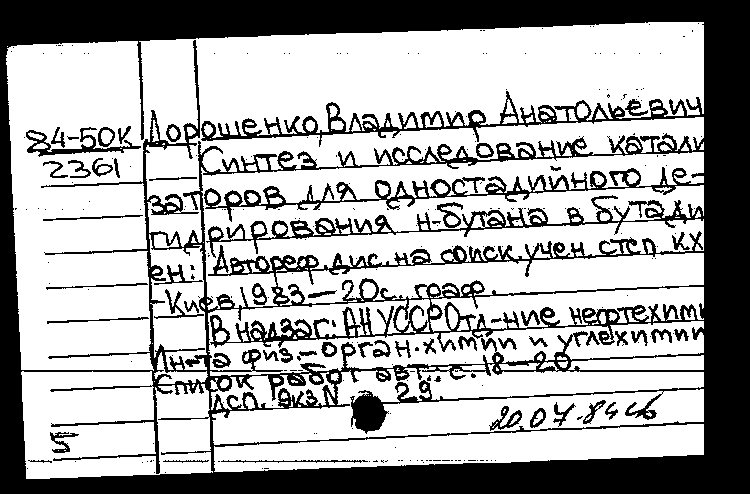 84-50К Дорошенко, Владимир Анатольевич
2361 Синтез и исследование катали
заторов для одностадийного де-
гидрирования н-бутана в бутади
ен: Автореф. дис. на соиск. учен. степ. к.х
- Киев, 1983 — 20с., граф.
В надзаг.: АН УССР Отд-ние нефтехими
Ин-та физ.-орган. химии и углехимии
Список работ авт.: с. 18-20.
ДСП. Экз. N 29.
20.07.84